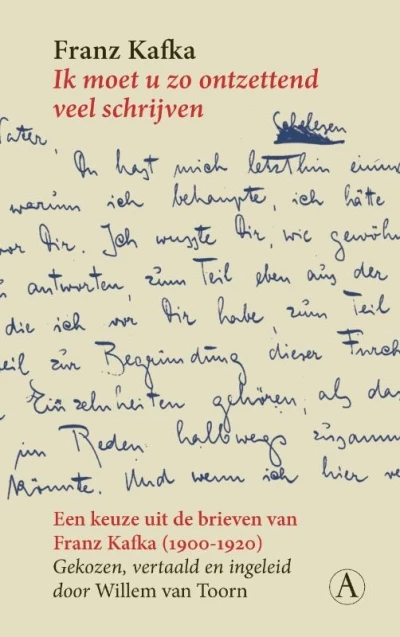 Franz Kafka
Ik moet u zo ontzettend
veel schrijven
Schelesen
Vater,
Du hast mich letzthin einm
warum ich behaupte, ich hätte
vor Dir. Ich wusste Dir, wie gewöhn
antworten, zum Teil eben aus der
die ich vor Dir habe, zum Teil
eil zur Begründung dieser Furch
Einzelnheiten gehören, als das
im Reden halbwegs zusamm
könnte. Und wenn ich hier ve
Een keuze uit de brieven van
Franz Kafka (1900-1920)
Gekozen, vertaald en ingeleid
door Willem van Toorn
A